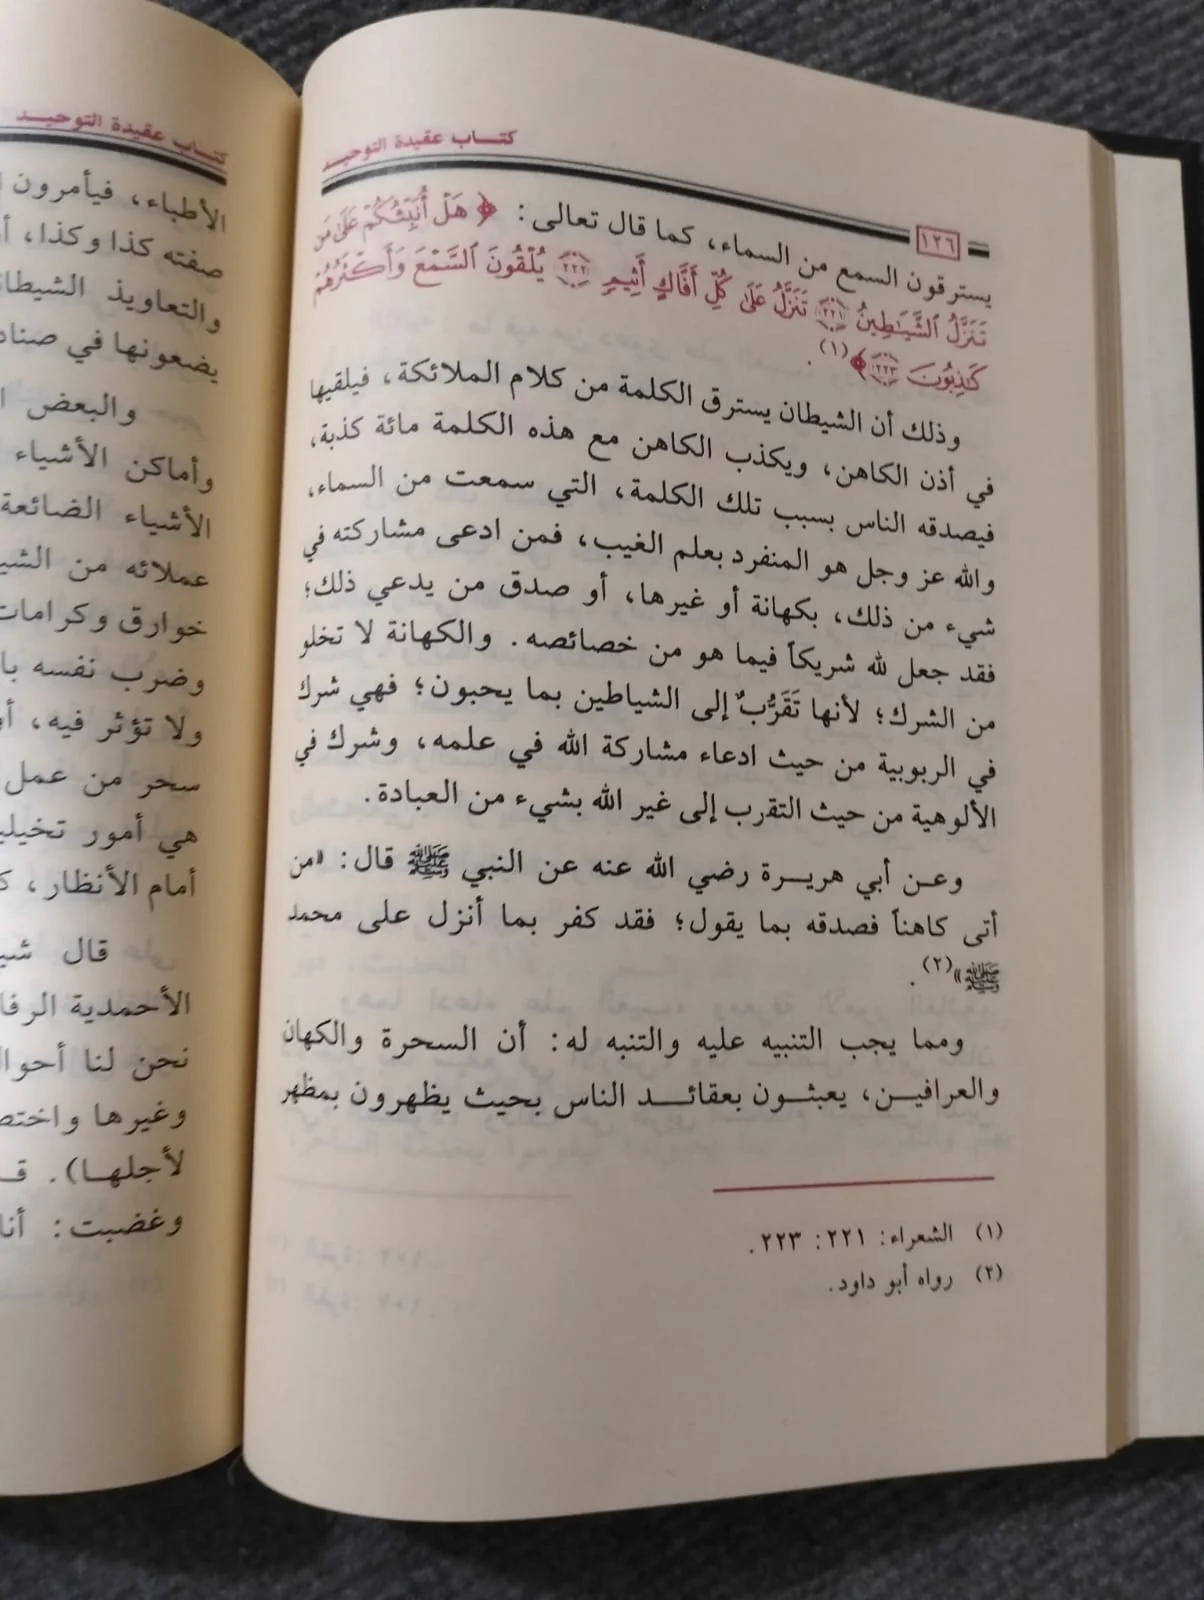 كتاب عقيدة التوحيد
١٢٦
يسترقون السمع من السماء، كما قال تعالى: ﴿هَلْ أُنَبِّئُكُمْ عَلَىٰ مَن
تَنَزَّلُ ٱلشَّيَـٰطِينُ ۝٢٢١ تَنَزَّلُ عَلَىٰ كُلِّ أَفَّاكٍ أَثِيمٍ ۝٢٢٢ يُلْقُونَ ٱلسَّمْعَ وَأَكْثَرُهُمْ
كَـٰذِبُونَ ۝٢٢٣﴾(١).
وذلك أن الشيطان يسترق الكلمة من كلام الملائكة، فيلقيها
في أذن الكاهن، ويكذب الكاهن مع هذه الكلمة مائة كذبة،
فيصدقه الناس بسبب تلك الكلمة، التي سمعت من السماء،
والله عز وجل هو المنفرد بعلم الغيب، فمن ادعى مشاركته في
شيء من ذلك، بكهانة أو غيرها، أو صدق من يدعي ذلك؛
فقد جعل لله شريكاً فيما هو من خصائصه. والكهانة لا تخلو
من الشرك؛ لأنها تَقَرُّبٌ إلى الشياطين بما يحبون؛ فهي شرك
في الربوبية من حيث ادعاء مشاركة الله في علمه، وشرك في
الألوهية من حيث التقرب إلى غير الله بشيء من العبادة.
وعـن أبي هريـرة رضي الله عنه عن النبي ﷺ قال: «من
أتى كاهناً فصدقه بما يقول؛ فقد كفر بما أنزل على محمد
ﷺ»(٢).
ومما يجب التنبيه عليه والتنبه له: أن السحرة والكهان
والعرافيـن، يعبثـون بعقائـد الناس بحيث يظهرون بمظهر
(١) الشعراء: ٢٢١: ٢٢٣.
(٢) رواه أبو داود.
كتاب عقيدة التوحيد
الأطباء، فيأمرون
صفته كذا وكذا،
والتعاويذ
يضعونها في
والبعض
وأماكن الأشياء
الأشياء الضائعة
عملائه من
خوارق وكرامات
وضرب نفسه
ولا تؤثر فيه،
سحر من عمل
هي أمور
أمام الأنظار،
قال
الأحمدية
نحن لنا
وغيرها
لأجلها).
وغضبت: أنا